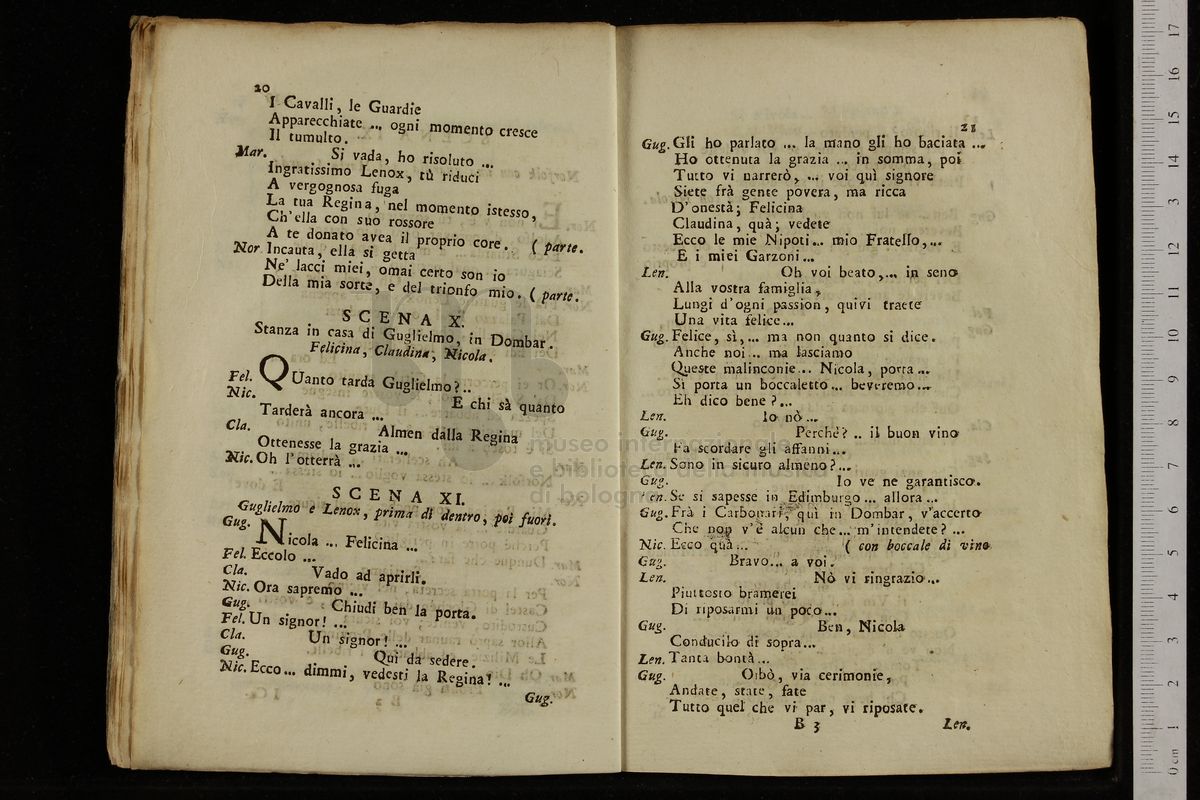 20
I Cavalli, le Guardie
Apparecchiate ... ogni momento cresce
Il tumulto.
Mar. Si vada, ho risoluto ...
Ingratissimo Lenox, tù riduci
A vergognosa fuga
La tua Regina, nel momento istesso,
Ch'ella con suo rossore
A te donato avea il proprio core. ( parte.
Nor. Incauta, ella si getta
Ne' lacci miei, omai certo son io
Della mia sorte, e del trionfo mio. ( parte.
SCENA X.
Stanza in casa di Guglielmo, in Dombar.
Felicina, Claudina, Nicola.
Fel. QUanto tarda Guglielmo?..
Nic. E chi sà quanto
Tarderà ancora ...
Cla. Almen dalla Regina
Ottenesse la grazia ...
Nic. Oh l'otterrà ...
SCENA XI.
Guglielmo e Lenox, prima di dentro, poi fuori.
Gug. Nicola ... Felicina ...
Fel. Eccolo ...
Cla. Vado ad aprirli.
Nic. Ora sapremo ...
Gug. Chiudi ben la porta.
Fel. Un signor! ...
Cla. Un signor! ...
Gug. Qui da sedere.
Nic. Ecco... dimmi, vedesti la Regina? ...
Gug.
21
Gug. Gli ho parlato ... la mano gli ho baciata ...
Ho ottenuta la grazia ... in somma, poi
Tutto vi narrerò, ... voi quì signore
Siete frà gente povera, ma ricca
D'onestà; Felicina
Claudina, quà; vedete
Ecco le mie Nipoti... mio Fratello,...
E i miei Garzoni...
Len. Oh voi beato,... in seno
Alla vostra famiglia,
Lungi d'ogni passion, quivi traete
Una vita felice...
Gug. Felice, sì,... ma non quanto si dice.
Anche noi... ma lasciamo
Queste malinconie... Nicola, porta...
Sì porta un boccaletto... beveremo...
Eh dico bene?...
Len. Io nò...
Gug. Perchè? .. il buon vino
Fa scordare gli affanni...
Len. Sono in sicuro almeno?...
Gug. Io ve ne garantisco.
Len. Se si sapesse in Edimburgo... allora...
Gug. Frà i Carbonari, quì in Dombar, v'accerto
Che non v'è alcun che... m'intendete?...
Nic. Ecco quà... ( con boccale di vino
Gug. Bravo... a voi.
Len. Nò vi ringrazio...
Piuttosto bramerei
Di riposarmi un poco...
Gug. Ben, Nicola
Conducilo di sopra...
Len. Tanta bontà...
Gug. Oibò, via cerimonie,
Andate, state, fate
Tutto quel che vi par, vi riposate.
B 3 Len.
museo internazionale
e biblioteca della musica
di bologna
0 cm 1 2 3 4 5 6 7 8 9 10 11 12 13 14 15 16 17